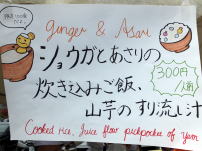 Ginger & Asari
ショウガとあさりの
炊き込みご飯、
山芋のすり流し汁
300円
/1人前
Cooked rice, Juice flow pickpocket of Yam